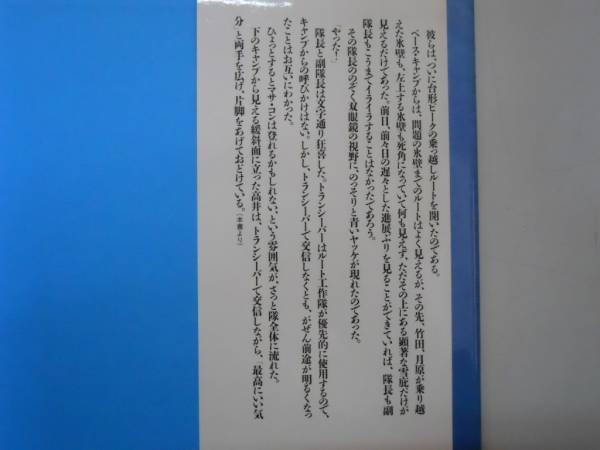 彼らは、ついに台形ピークの乗っ越しルートを開いたのである。
ベース・キャンプからは、問題の氷壁までのルートはよく見えるが、その先、竹田、月原が乗り越
えた氷壁も、左上する氷壁も死角になっていて何も見えず、ただその上にある顕著な雪庇だけが
見えるだけであった。前日、前々日の遅々とした進展ぶりを見ることができていれば、隊長も副
隊長もこうまでイライラすることはなかったであろう。
その隊長ののぞく双眼鏡の視野に、のっそりと青いヤッケが現れたのであった。
「やった!」
隊長と副隊長は文字通り狂喜した。トランシーバーはルート工作隊が優先的に使用するので、
キャンプからの呼びかけはない。しかし、トランシーバーで交信しなくとも、がぜん前途が明るくなっ
たことはお互いにわかった。
ひょっとするとマサ・コンは登れるかもしれない、という雰囲気が、さっと隊全体に流れた。
下のキャンプから見える緩斜面に立った高井は、トランシーバーで交信しながら、「最高にいい気
分」と両手を広げ、片脚をあげておどけている。(本書より)